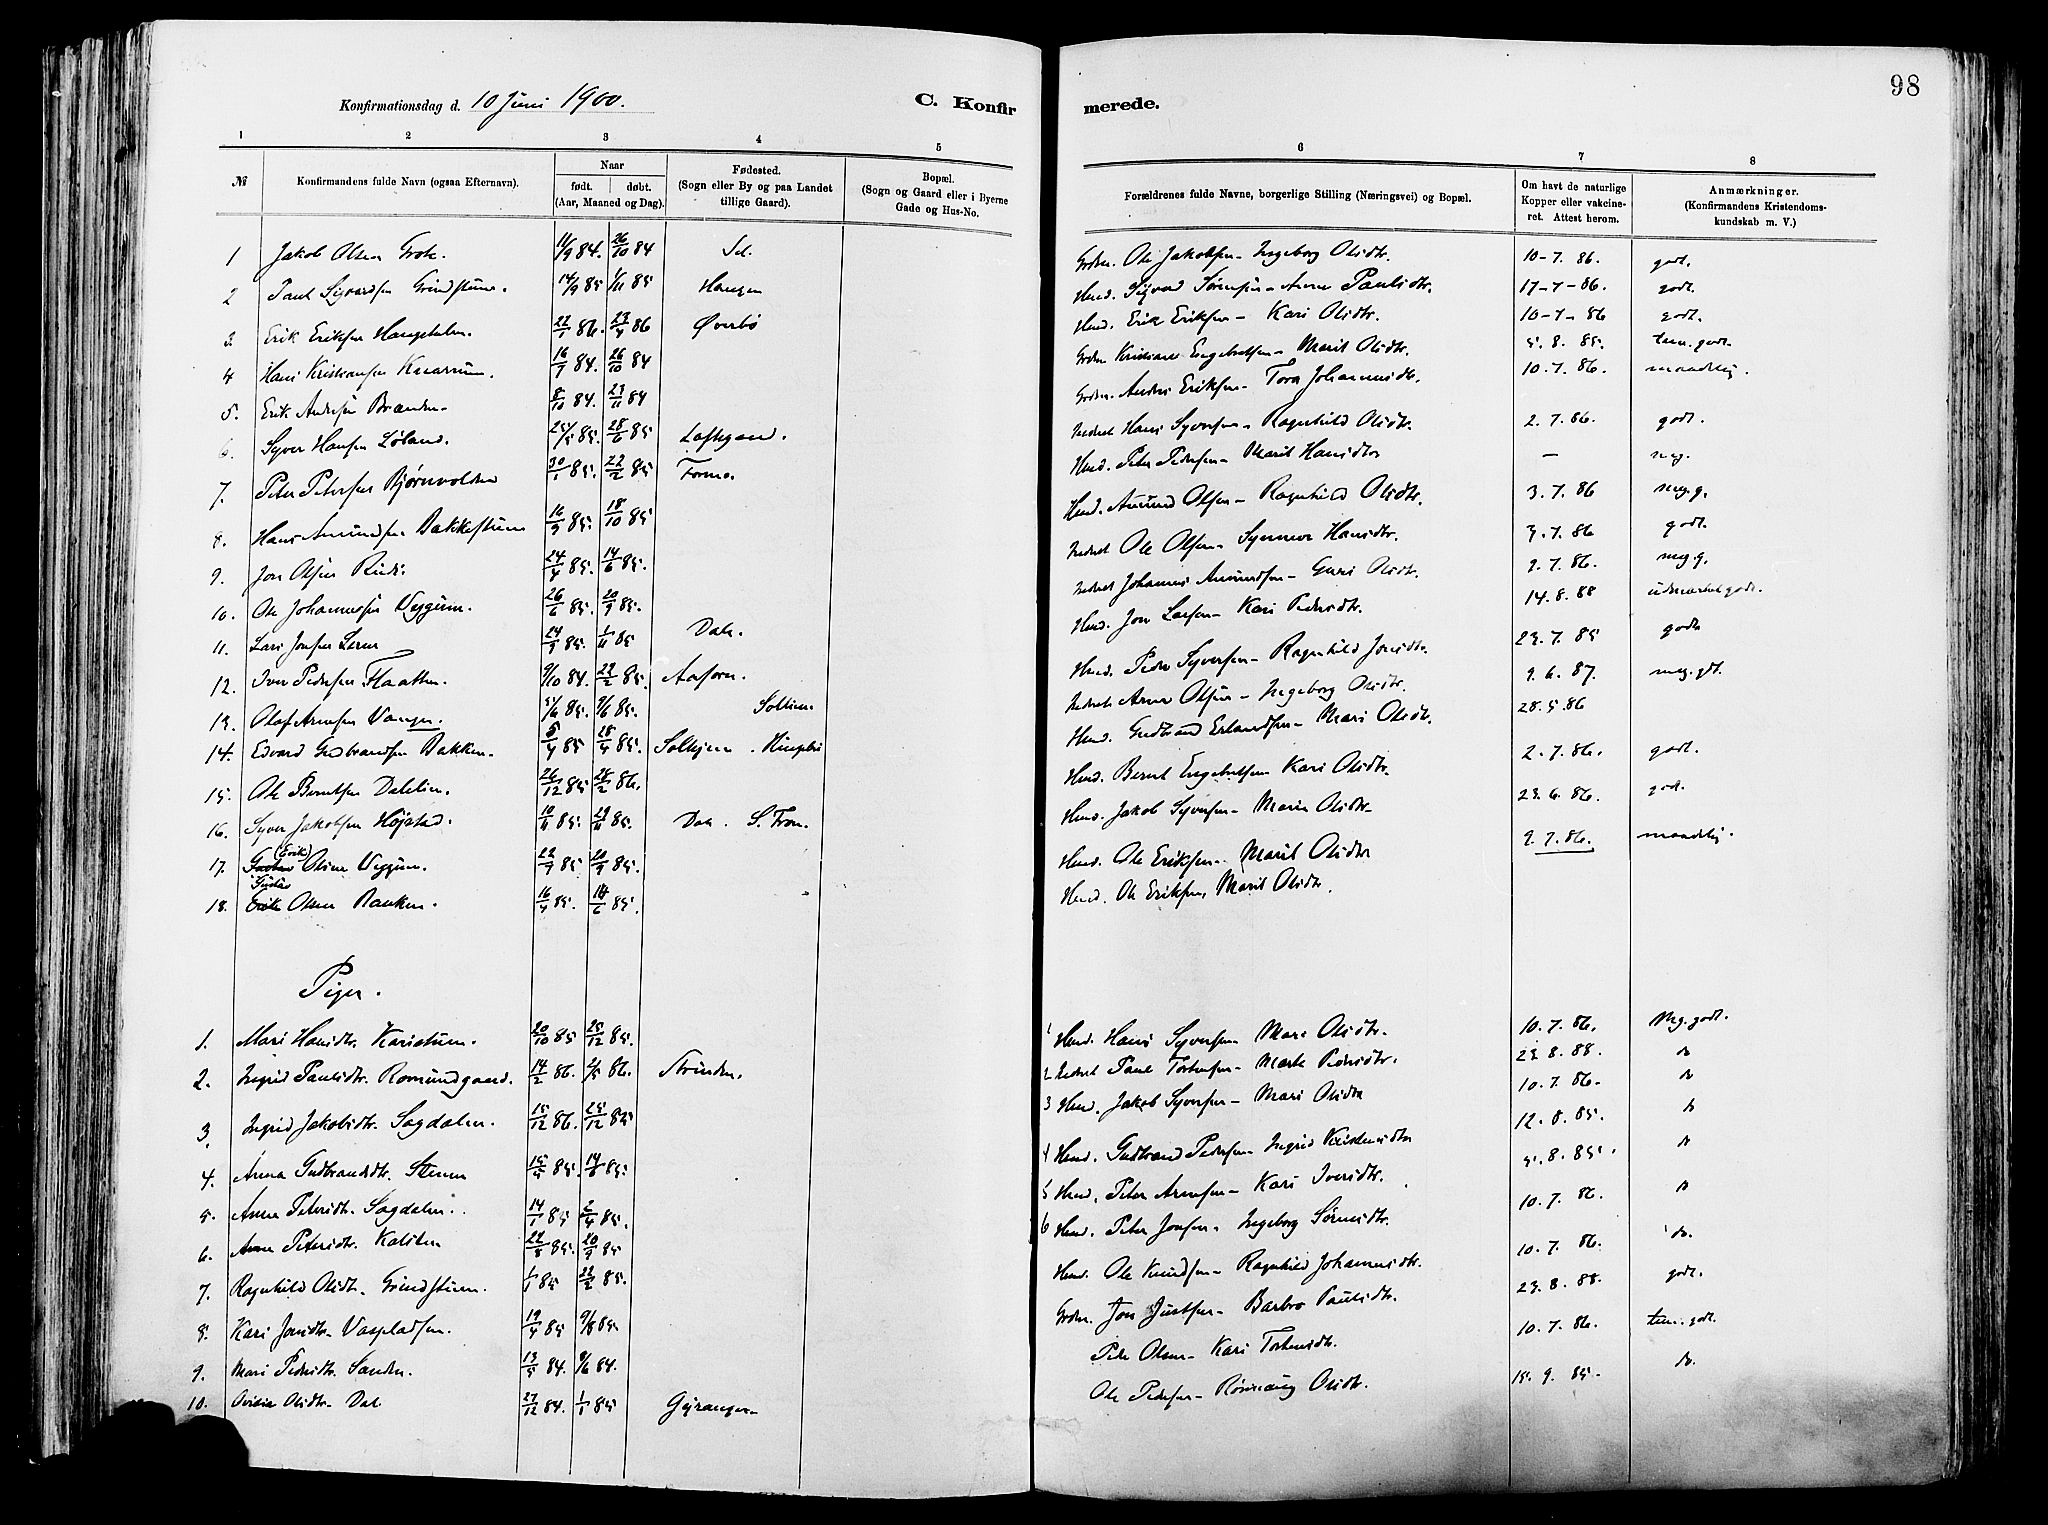 98
Konfirmationsdag d. 10 Juni 1900.
C. Konfir merede.
1 2 3 4 5 6 7 8
№
Konfirmandens fulde Navn (ogsaa Efternavn).
Naar
født. døbt.
(Aar, Maaned og Dag).
Fødested.
(Sogn eller By og paa Landet
tillige Gaard).
Bopæl.
(Sogn og Gaard eller i Byerne
Gade og Hus-No.
Forældrenes fulde Navne, borgerlige Stilling (Næringsvei) og Bopæl.
Om havt de naturlige
Kopper eller vakcine-
ret. Attest herom.
Anmærkninger.
(Konfirmandens Kristendoms-
kundskab m. V.)
1 Jakob Olsen 11/9 84. 26/10 84 Sel. Ole Jakobsen - Ingeborg Olsdtr. 10-7. 86. godt.
2 Paul Sigvardsen Grindstuen. 14/9 85 1/11 85 Haugen Husm. Sigvard Sørensen - Anne Paulsdtr. 17-7-86. godt.
3. Erik Eriksen Haugdalen. 22/1 86. 23/4 86 Øverbø Husm. Erik Eriksen - Kari Olsdtr. 10-7-86 godt.
4 Hans Kristiansen 16/7 84. 26/10 84 Kristian Engebretsen - Marit Olsdtr. 5. 8. 85. tem. godt.
5. Erik Andersen Brænden. 8/10 84. 23/11 84 Anders Eriksen - Tora Johannesdtr. 10. 7. 86. maadelig.
6. Syver Hansen Løland. 25/5 85. 28/6 85 Loftsgaard. Hans Syversen - Ragnhild Olsdtr. 2. 7. 86. godt.
7. Peter Petersen Bjørnvolden 30/1 85. 22/2 85 Formo. Husm. Peter Pedersen - Marit Hansdtr — meg.
8. Hans Amundsen Bakkestuen 16/9 85. 18/10 85 Husm. Amund Olsen - Ragnhild Olsdtr. 3. 7. 86 meg. g.
9. Jon Olsen 24/4 85. 14/6 85. Ole Olsen - Synnøve Hansdtr. 3. 7. 86 godt.
10. Ole Johannessen Veggum. 26/6 85. 20/9 85. Johannes Amundsen - Guri Olsdtr. 2. 7. 86. meg. g.
11. Lars Jonsen 24/9 85. 1/11 85 Dale. Husm. Jon Larsen - Kari Pedersdtr. 14. 8. 88 udmærket godt.
12. Iver Pedersen Flaatten. 9/10 84. 22/2 85. Aasoren. Husm. Peder Syversen - Ragnhild Jonsdtr. 23. 7. 85 godt
13. Olaf Arnesen Vangen. 5/6 85. 7/6 85. Solhjem Arne Olsen - Ingeborg Olsdtr. 9. 6. 87. meg. gdt.
14. Edvard Gudbrandsen Bakken. 5/4 85 18/4 85. Solhjem. Husm. Gudbrand Erlandsen - Mari Olsdtr. 28. 5. 86
15. Ole Berntsen Dahlen. 26/12 85 28/2 86. Husm. Bernt Engebretsen Kari Olsdtr. 2. 7. 86. godt.
16. Syver Jakobsen Højstad. 10/11 85. 29/11 85. Dale. S. Fron. Husm. Jakob Syversen - Marie Olsdtr. 23. 6. 86. godt.
17. (Erik) Olsen Veggum. 22/7 85. 20/9 85. Husm. Ole Eriksen - Marit Olsdtr 9. 7. 86. maadelig.
18. Erik Olsen 16/4 85. 14/6 85. Husm. Ole Eriksen, Marit Olsdtr.
Piger.
1. Mari Hansdtr. Karistuen. 20/10 85 25/12 85. 1 Husm. Hans Syversen - Mari Olsdtr. 10. 7. 86. Meg. godt.
2. Ingrid Paulsdtr. Romundgaard. 14/2 86. 2/5 86. Strinden. 2 Paul Torstensen - Marte Pedersdtr. 23. 8. 88. do
3. Ingrid Jakobsdtr. Sagdalen. 15/12 86. 25/12 85 3 Husm. Jakob Syversen - Mari Olsdtr 10. 7. 86. do
4. Anna Gudbrandsdtr. Steinen 15/5 85. 14/6 85. 4 Husm. Gudbrand Pedersen - Ingrid Kristensdtr 12. 8. 85. do
5. Anne Petersdtr. Sagdalen. 14/1 85 2/4 85. 5 Husm. Peter Arnesen - Kari Iversdtr. 5. 8. 85. do
6. Anne Petersdtr. 22/8 85. 20/9 85 6 Husm. Peter Jonsen - Ingeborg Sørensdtr. 10. 7. 86. do
7. Ragnhild Olsdtr. Grindstuen. 1/1 85 22/2 85. Husm. Ole Knudsen - Ragnhild Johannesdtr. 10. 7. 86. do.
8. Kari Jonsdtr. 19/4 85 9/8 85 Jon Justsen - Barbro Paulsdtr. 23. 8. 88. godt.
9. Mari Pedersdtr. Sanden. 13/5 84. 9/6 84. Peder Olsen - Kari Torstensdtr. 10. 7. 86. tem. godt.
10. Olsdtr. Dal 27/12 84. 1/1 85 Gejrangen Ole Pedersen - Rønnaug Olsdtr. 15. 9. 85. do.